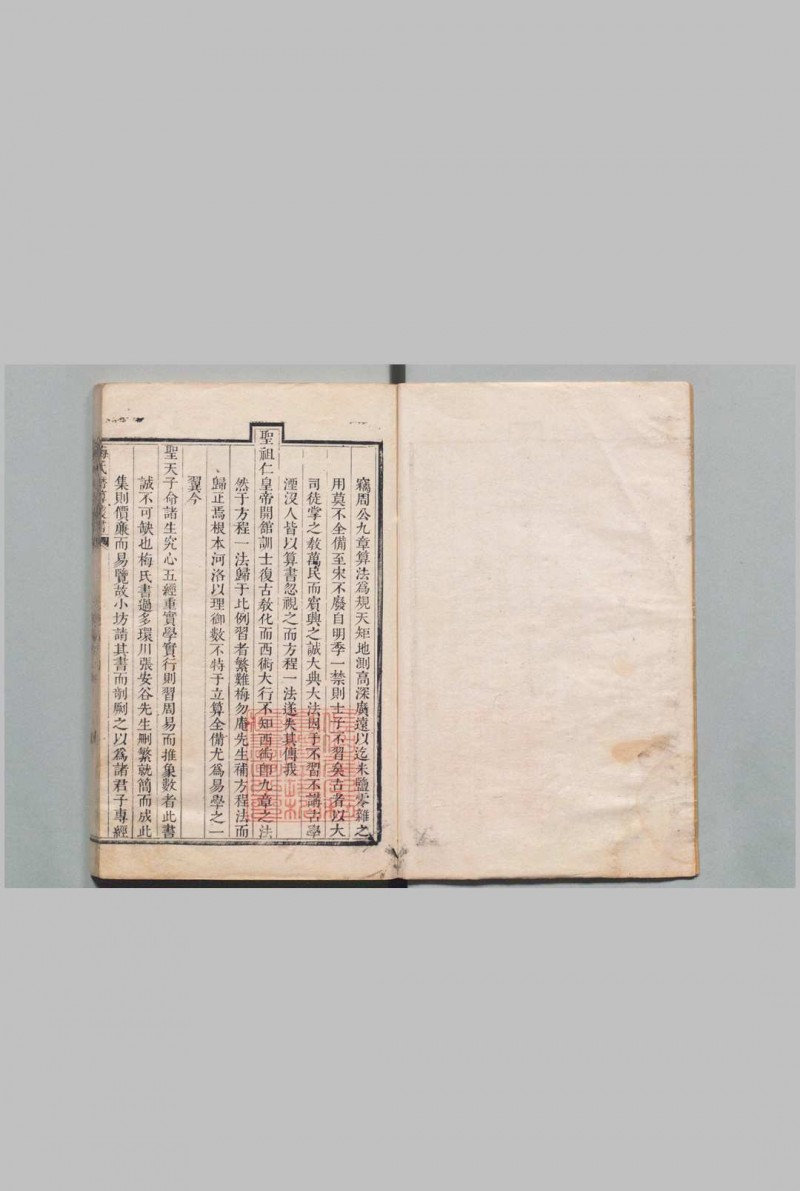 竊周公九章算法爲規天矩地測高深廣遠以迄未鹽零雜之
用莫不全備至宋不廢自明季一禁則士子不習矣古者以大
司徒掌之敎萬民而賓興之誠大典大法因于不習不講古學
湮沒人皆以算書忽視之而方程一法遂失其傳我
聖祖仁皇帝開館訓士復古敎化而西術大行不知西術卽九章之法
然于方程一法歸于比例習者繁難梅勿庵先生補方程法而
歸正焉根本河洛以理御數不特于立算全備尤爲易學之一
翼今
聖天子命諸生究心五經重實學實行則習周易而推象數者此書
誠不可缺也梅氏書過多環川張安谷先生刪繁就簡而成此
集則價廉而易覽故小坊請其書而剞劂之以爲諸君子專經
梅氏